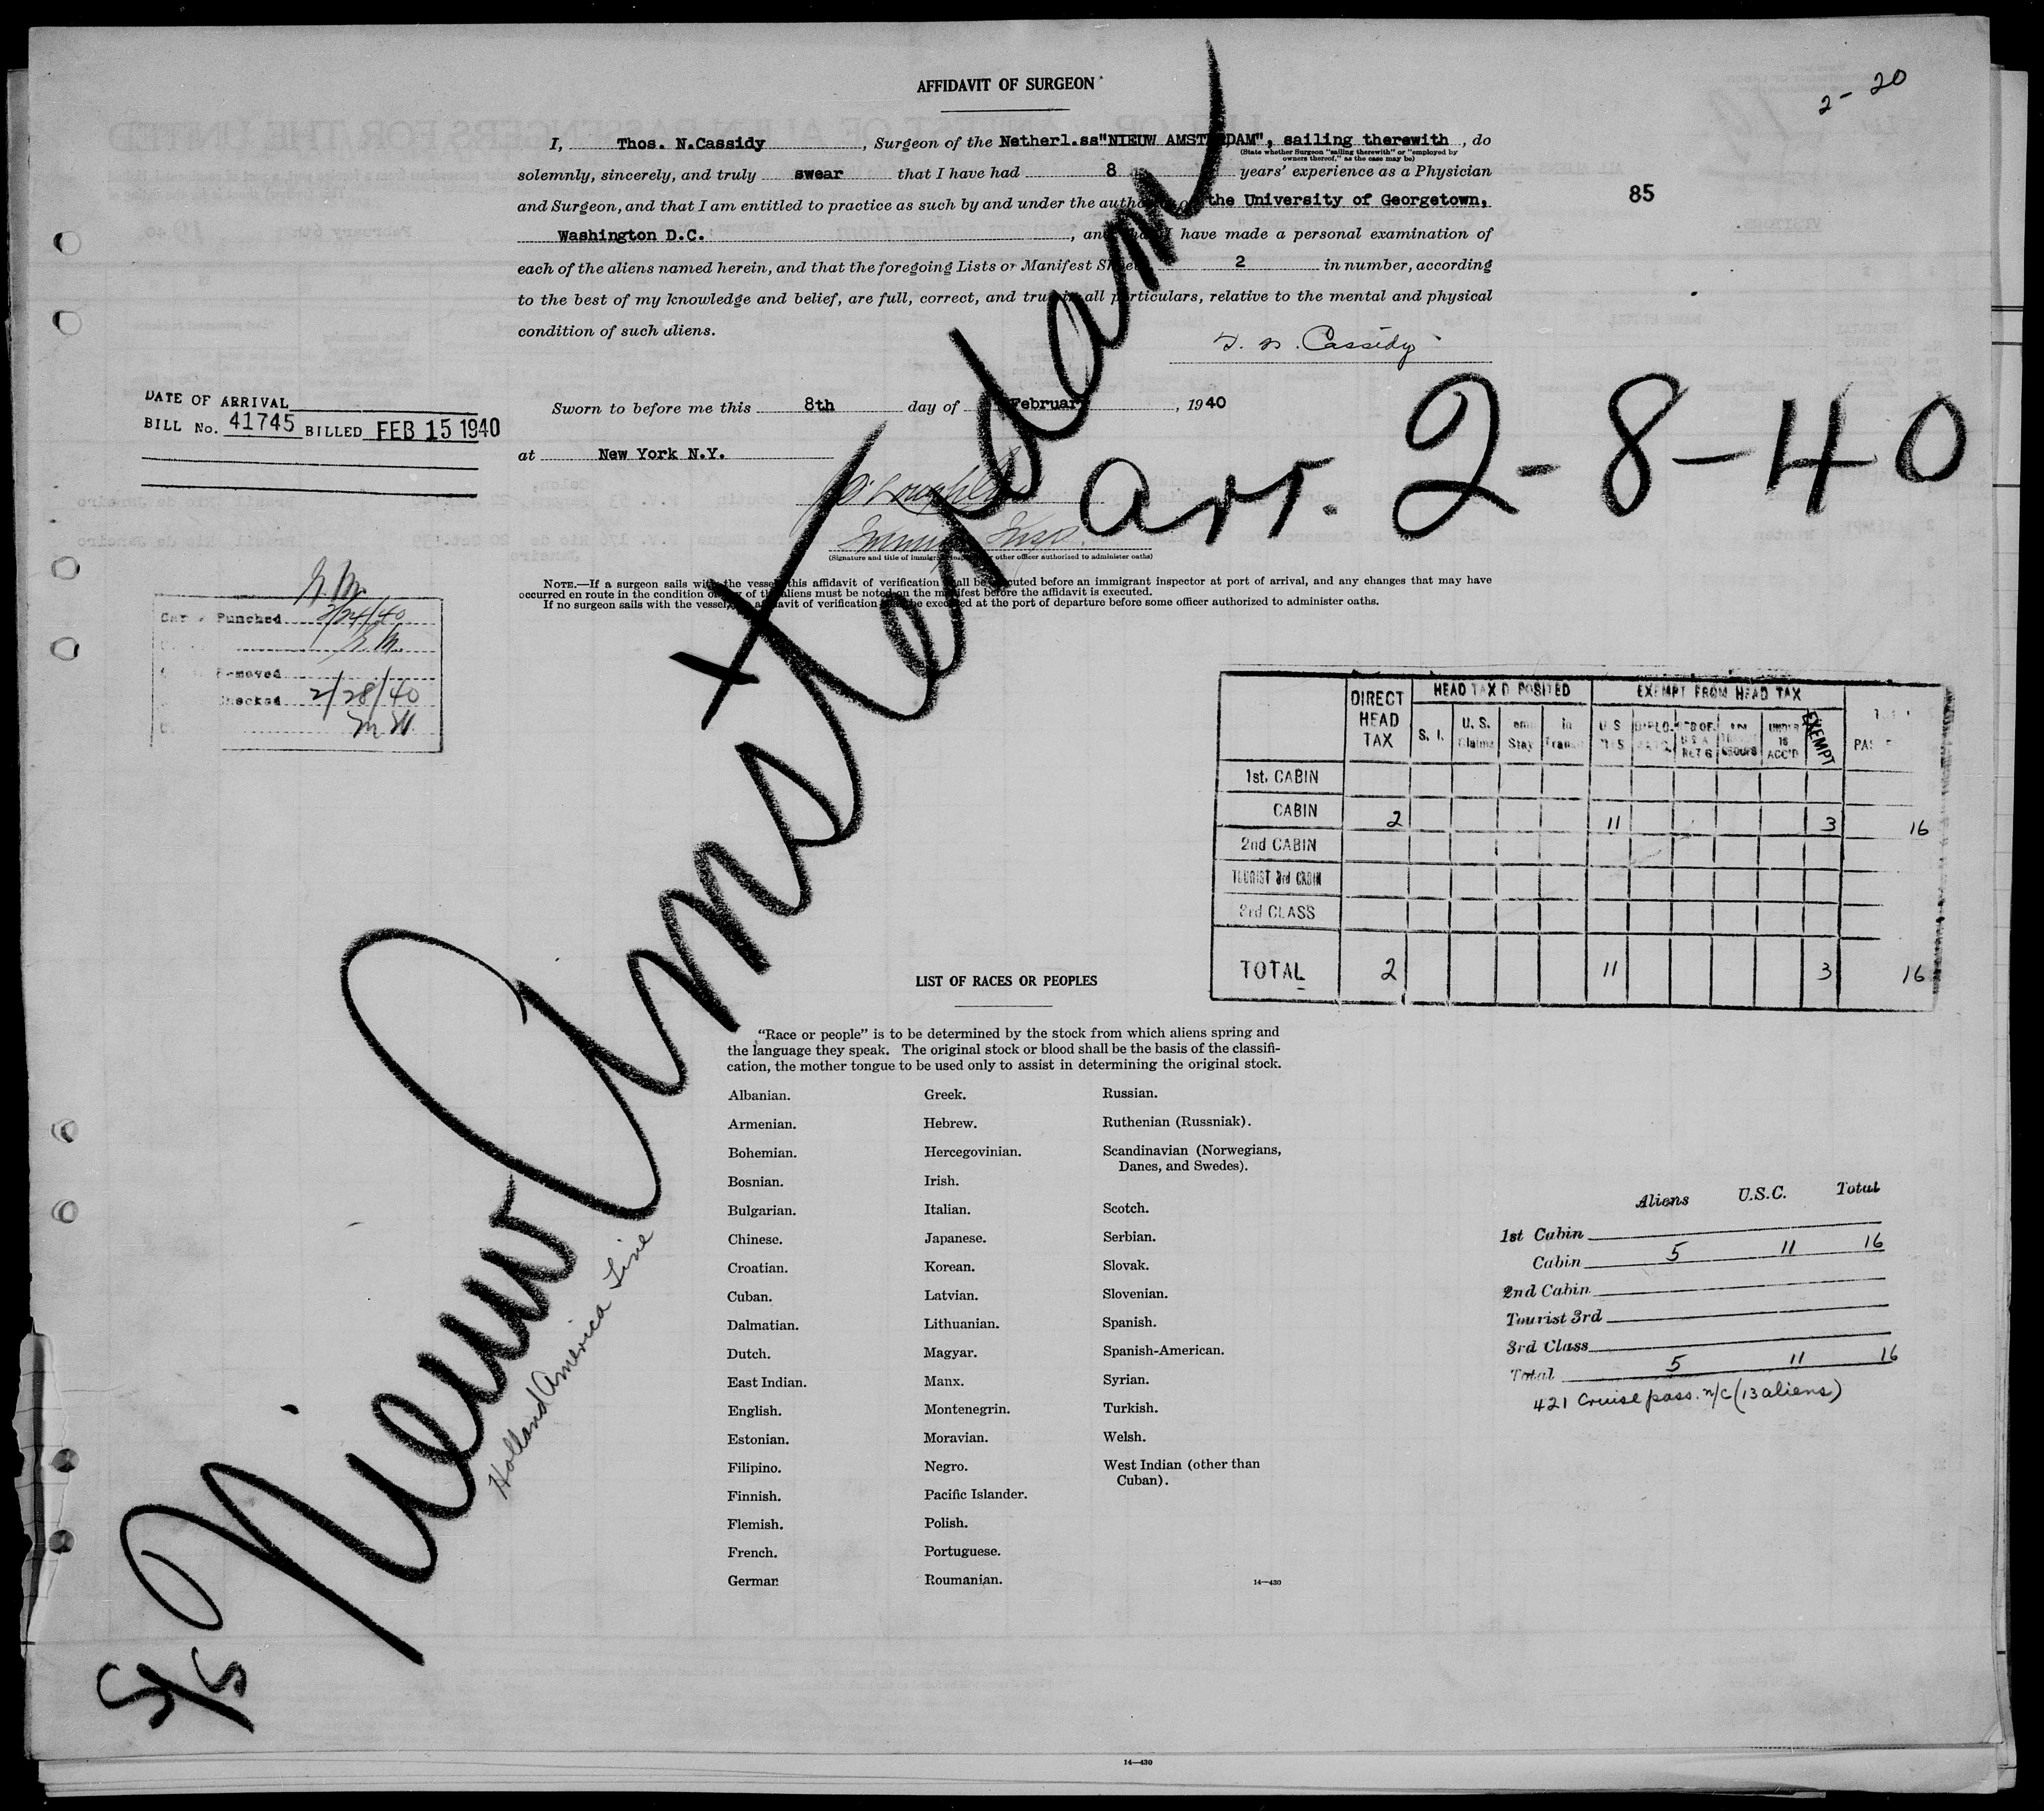 AFFIDAVIT OF SURGEON
2-20
I, Thos. N.Cassidy, Surgeon of the Netherl.ss"NIEUW AMSTERDAM", sailing therewith, do
(State whether Surgeon "sailing therewith" or "employed by
owners thereof," as the case may be)
solemnly, sincerely, and truly swear that I have had 8 years' experience as a Physician
85
and Surgeon, and that I am entitled to practice as such by and under the authority of the University of Georgetown,
Washington D.C., and that I have made a personal examination of
each of the aliens named herein, and that the foregoing Lists or Manifest Sheets 2 in number, according
to the best of my knowledge and belief, are full, correct, and true in all particulars, relative to the mental and physical
condition of such aliens.
T. N. Cassidy
DATE OF ARRIVAL
BILL No. 41745 BILLED FEB 15 1940
Sworn to before me this 8th day of February, 1940
at New York N.Y.
arr. 2-8-40
Immig. Insp.
(Signature and title of immigrant inspector or other officer authorized to administer oaths)
NOTE.—If a surgeon sails with the vessel, this affidavit of verification shall be executed before an immigrant inspector at port of arrival, and any changes that may have
occurred en route in the condition of any of the aliens must be noted on the manifest before the affidavit is executed.
If no surgeon sails with the vessel, the affidavit of verification shall be executed at the port of departure before some officer authorized to administer oaths.
Punched 2/24/40
Removed
Checked 2/28/40
M M.
DIRECT HEAD TAX
HEAD TAX DEPOSITED
EXEMPT FROM HEAD TAX
S. I. U. S. Claims Stay in Transit U S UNDER 16 ACC'D EXEMPT
1st. CABIN
CABIN 2 11 3 16
2nd CABIN
TOURIST 3rd CABIN
3rd CLASS
TOTAL 2 11 3 16
S/S Nieuw Amsterdam
Holland America Line
LIST OF RACES OR PEOPLES
"Race or people" is to be determined by the stock from which aliens spring and
the language they speak. The original stock or blood shall be the basis of the classifi-
cation, the mother tongue to be used only to assist in determining the original stock.
Albanian.
Armenian.
Bohemian.
Bosnian.
Bulgarian.
Chinese.
Croatian.
Cuban.
Dalmatian.
Dutch.
East Indian.
English.
Estonian.
Filipino.
Finnish.
Flemish.
French.
German
Greek.
Hebrew.
Hercegovinian.
Irish.
Italian.
Japanese.
Korean.
Latvian.
Lithuanian.
Magyar.
Manx.
Montenegrin.
Moravian.
Negro.
Pacific Islander.
Polish.
Portuguese.
Roumanian.
Russian.
Ruthenian (Russniak).
Scandinavian (Norwegians,
Danes, and Swedes).
Scotch.
Serbian.
Slovak.
Slovenian.
Spanish.
Spanish-American.
Syrian.
Turkish.
Welsh.
West Indian (other than
Cuban).
14—430
Aliens U.S.C. Total
1st Cabin
Cabin 5 11 16
2nd Cabin
Tourist 3rd
3rd Class
Total 5 11 16
421 Cruise pass. n/c (13 aliens)
14—430